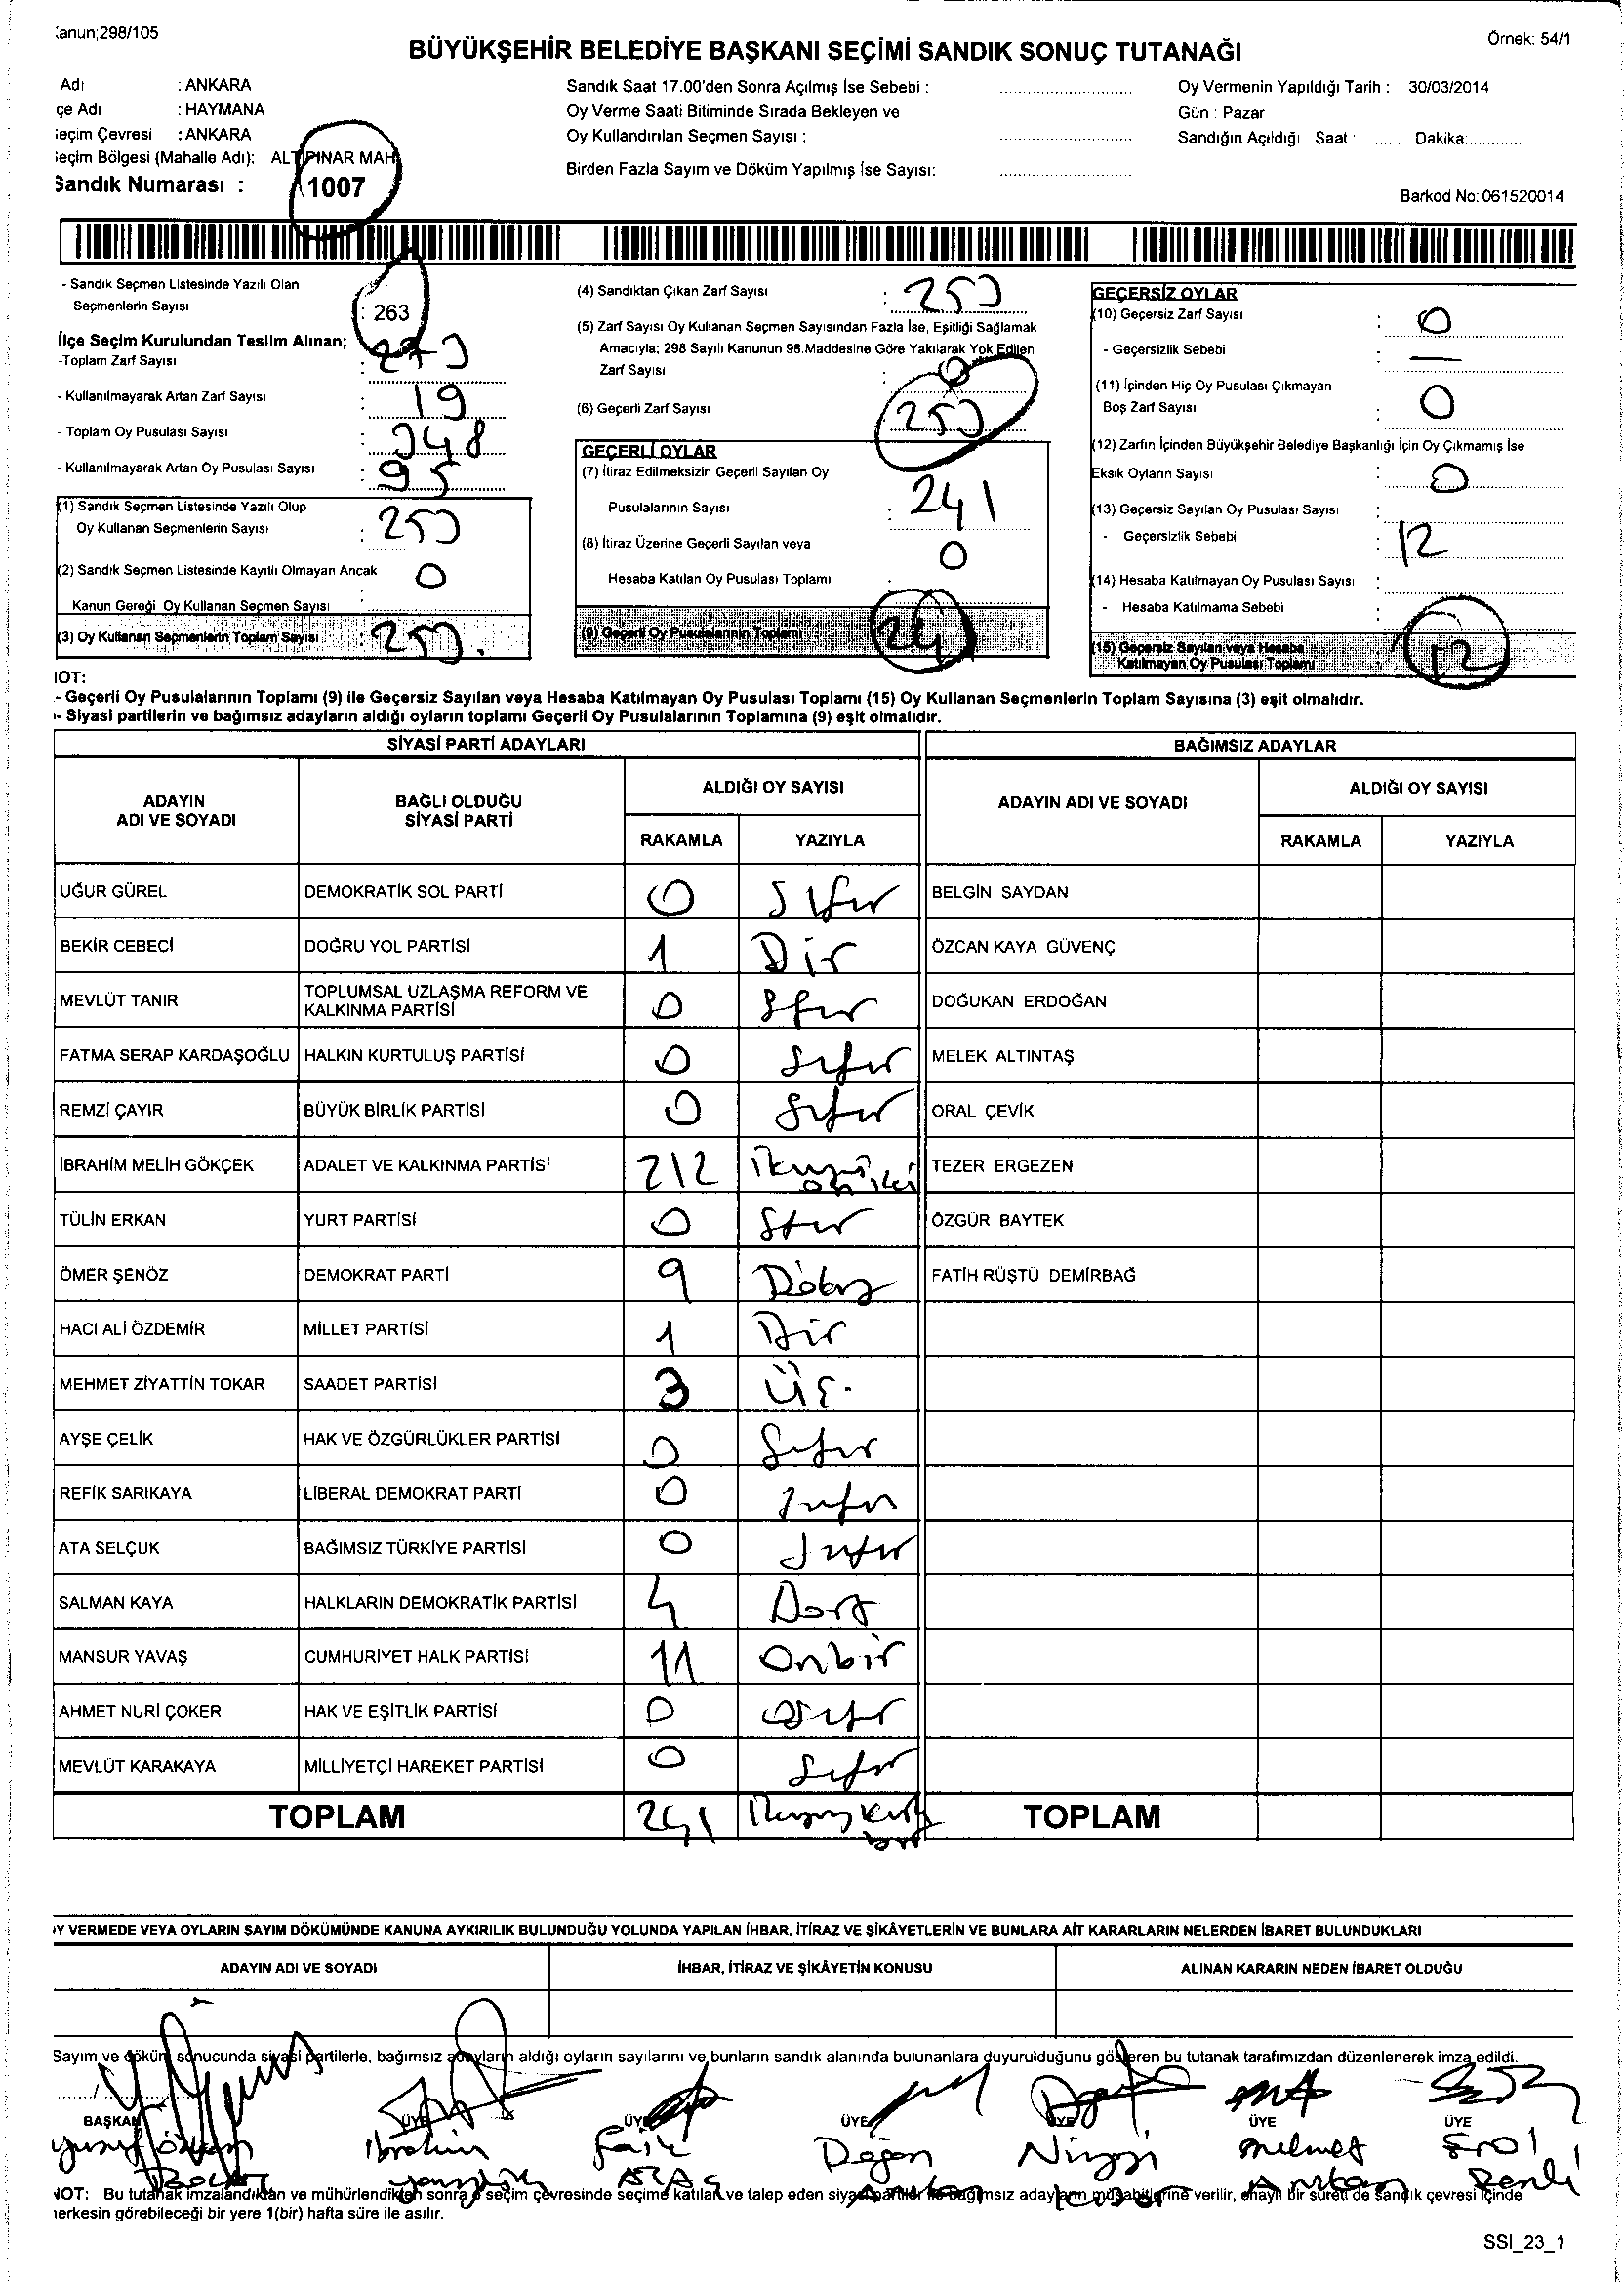 Kanun;298/105
Örnek: 54/1
BÜYÜKŞEHİR BELEDİYE BAŞKANI SEÇİMİ SANDIK SONUÇ TUTANAĞI
Adı : ANKARA
çe Adı : HAYMANA
eçim Çevresi : ANKARA
eçim Bölgesi (Mahalle Adı): ALTIPINAR MAH
Sandık Numarası : 1007
Sandık Saat 17.00'den Sonra Açılmış İse Sebebi :
Oy Verme Saati Bitiminde Sırada Bekleyen ve
Oy Kullandırılan Seçmen Sayısı :
Birden Fazla Sayım ve Döküm Yapılmış İse Sayısı:
Oy Vermenin Yapıldığı Tarih : 30/03/2014
Gün : Pazar
Sandığın Açıldığı Saat :............ Dakika:............
Barkod No: 061520014
- Sandık Seçmen Listesinde Yazılı Olan
Seçmenlerin Sayısı : 263
İlçe Seçim Kurulundan Teslim Alınan;
-Toplam Zarf Sayısı :
- Kullanılmayarak Artan Zarf Sayısı : 19
- Toplam Oy Pusulası Sayısı : 348
- Kullanılmayarak Artan Oy Pusulası Sayısı : 95
(1) Sandık Seçmen Listesinde Yazılı Olup
Oy Kullanan Seçmenlerin Sayısı : 253
(2) Sandık Seçmen Listesinde Kayıtlı Olmayan Ancak
Kanun Gereği Oy Kullanan Seçmen Sayısı : 0
(3) Oy Kullanan Seçmenlerin Toplam Sayısı : 253
(4) Sandıktan Çıkan Zarf Sayısı : 253
(5) Zarf Sayısı Oy Kullanan Seçmen Sayısından Fazla İse, Eşitliği Sağlamak
Amacıyla; 298 Sayılı Kanunun 98.Maddesine Göre Yakılarak Yok Edilen
Zarf Sayısı : 0
(6) Geçerli Zarf Sayısı 253
GEÇERLİ OYLAR
(7) İtiraz Edilmeksizin Geçerli Sayılan Oy
Pusulalarının Sayısı : 241
(8) İtiraz Üzerine Geçerli Sayılan veya
Hesaba Katılan Oy Pusulası Toplamı : 0
(9) Geçerli Oy Pusulalarının Toplamı : 241
GEÇERSİZ OYLAR
(10) Geçersiz Zarf Sayısı : 0
- Geçersizlik Sebebi : —
(11) İçinden Hiç Oy Pusulası Çıkmayan
Boş Zarf Sayısı : 0
(12) Zarfın İçinden Büyükşehir Belediye Başkanlığı İçin Oy Çıkmamış İse
Eksik Oyların Sayısı : 0
(13) Geçersiz Sayılan Oy Pusulası Sayısı :
- Geçersizlik Sebebi : 12
(14) Hesaba Katılmayan Oy Pusulası Sayısı :
- Hesaba Katılmama Sebebi :
(15) Geçersiz Sayılan veya Hesaba
Katılmayan Oy Pusulası Toplamı : 12
NOT:
- Geçerli Oy Pusulalarının Toplamı (9) ile Geçersiz Sayılan veya Hesaba Katılmayan Oy Pusulası Toplamı (15) Oy Kullanan Seçmenlerin Toplam Sayısına (3) eşit olmalıdır.
- Siyasi partilerin ve bağımsız adayların aldığı oyların toplamı Geçerli Oy Pusulalarının Toplamına (9) eşit olmalıdır.
SİYASİ PARTİ ADAYLARI BAĞIMSIZ ADAYLAR
ADAYIN ADI VE SOYADI BAĞLI OLDUĞU SİYASİ PARTİ ALDIĞI OY SAYISI ADAYIN ADI VE SOYADI ALDIĞI OY SAYISI
RAKAMLA YAZIYLA RAKAMLA YAZIYLA
UĞUR GÜREL DEMOKRATİK SOL PARTİ 0 Sıfır BELGİN SAYDAN
BEKİR CEBECİ DOĞRU YOL PARTİSİ 1 Bir ÖZCAN KAYA GÜVENÇ
MEVLÜT TANIR TOPLUMSAL UZLAŞMA REFORM VE KALKINMA PARTİSİ 0 Sıfır DOĞUKAN ERDOĞAN
FATMA SERAP KARDAŞOĞLU HALKIN KURTULUŞ PARTİSİ 0 Sıfır MELEK ALTINTAŞ
REMZİ ÇAYIR BÜYÜK BİRLİK PARTİSİ 0 Sıfır ORAL ÇEVİK
İBRAHİM MELİH GÖKÇEK ADALET VE KALKINMA PARTİSİ 212 ikiyüz on iki TEZER ERGEZEN
TÜLİN ERKAN YURT PARTİSİ 0 Sıfır ÖZGÜR BAYTEK
ÖMER ŞENÖZ DEMOKRAT PARTİ 9 Dokuz FATİH RÜŞTÜ DEMİRBAĞ
HACI ALİ ÖZDEMİR MİLLET PARTİSİ 1 Bir
MEHMET ZİYATTİN TOKAR SAADET PARTİSİ 3 Üç.
AYŞE ÇELİK HAK VE ÖZGÜRLÜKLER PARTİSİ 0 Sıfır
REFİK SARIKAYA LİBERAL DEMOKRAT PARTİ 0 Sıfır
ATA SELÇUK BAĞIMSIZ TÜRKİYE PARTİSİ 0 Sıfır
SALMAN KAYA HALKLARIN DEMOKRATİK PARTİSİ 4 Dört
MANSUR YAVAŞ CUMHURİYET HALK PARTİSİ 11 Onbir
AHMET NURİ ÇOKER HAK VE EŞİTLİK PARTİSİ 0 Sıfır
MEVLÜT KARAKAYA MİLLİYETÇİ HAREKET PARTİSİ 0 Sıfır
TOPLAM 241 ikiyüz kırk bir TOPLAM
OY VERMEDE VEYA OYLARIN SAYIM DÖKÜMÜNDE KANUNA AYKIRILIK BULUNDUĞU YOLUNDA YAPILAN İHBAR, İTİRAZ VE ŞİKÂYETLERİN VE BUNLARA AİT KARARLARIN NELERDEN İBARET BULUNDUKLARI
ADAYIN ADI VE SOYADI İHBAR, İTİRAZ VE ŞİKÂYETİN KONUSU ALINAN KARARIN NEDEN İBARET OLDUĞU
Sayım ve döküm sonucunda siyasi partilerle, bağımsız adayların aldığı oyların sayılarını ve bunların sandık alanında bulunanlara duyurulduğunu gösteren bu tutanak tarafımızdan düzenlenerek imza edildi.
BAŞKAN ÜYE ÜYE ÜYE ÜYE ÜYE ÜYE
Yusuf Özkan İbrahim Faik Doğan Niyazi Mehmet Erol
ARAÇ Arıkan
NOT: Bu tutanak imzalandıktan ve mühürlendikten sonra o seçim çevresinde seçime katılan ve talep eden siyasi partiler ile bağımsız adayların müşahitlerine verilir, onaylı bir sureti de sandık çevresi içinde
herkesin görebileceği bir yere 1(bir) hafta süre ile asılır.
SSI_23_1